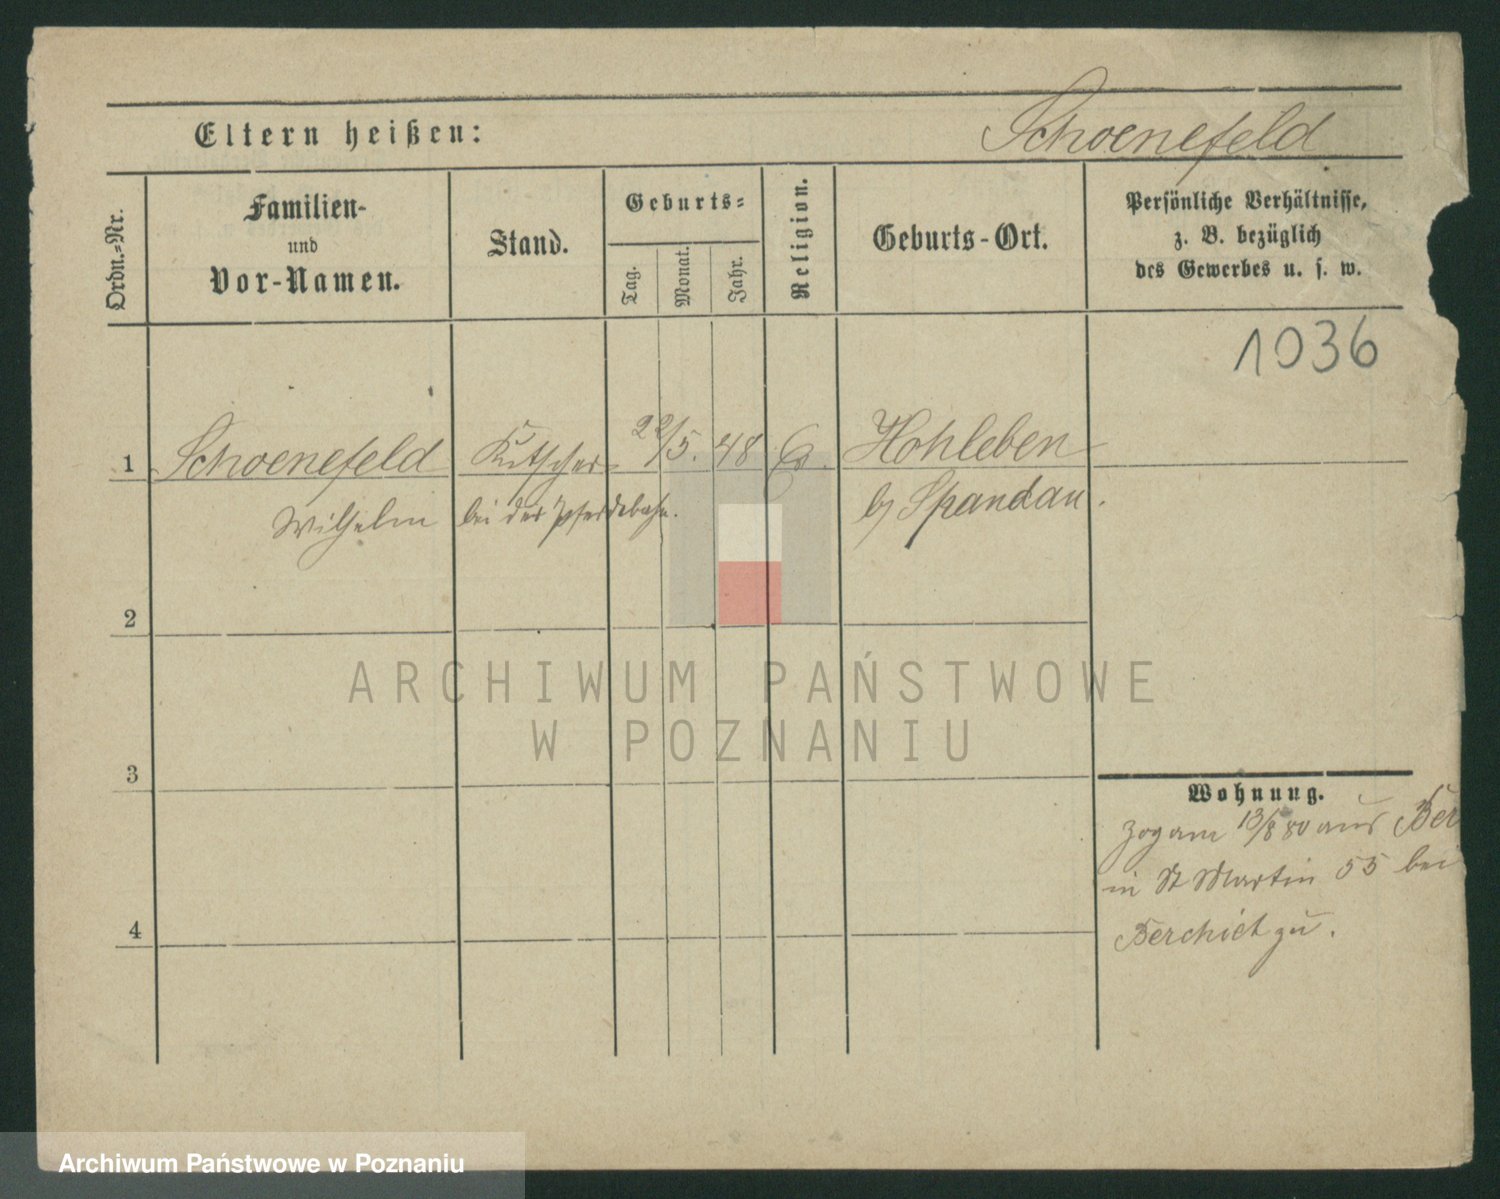 Schoenefeld
Eltern heißen:
Ordn.-Nr.
Familien-
und
Vor-Namen.
Stand.
Geburts-
Tag.
Monat.
Jahr.
Religion.
Geburts-Ort.
Persönliche Verhältnisse,
z. B. bezüglich
des Gewerbes u. s. w.
1036
1 Schoenefeld Kutscher 22/5. 48 Hohleben
Wilhelm bei der Pferdebahn. b/ Spandau.
2
3
4
Wohnung.
zog am 13/8 80 aus Ber
in St Martin 55 bei
Berchiet zu.
ARCHIWUM PAŃSTWOWE
W POZNANIU
Archiwum Państwowe w Poznaniu